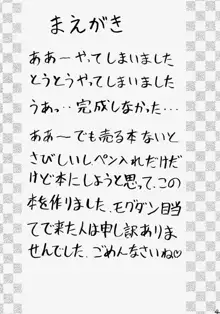 まえがき
ああーやってしまいました
とうとうやってしまいました
うあっ‥完成しなかった‥･
ああ〜でも売る本ないと
さびしいしペン入れだけだ
けど本にしようと思って、この
本を作りました。モグダン目当
てで来た人は申し訳ありま
せんでした。ごめんなさいね♡